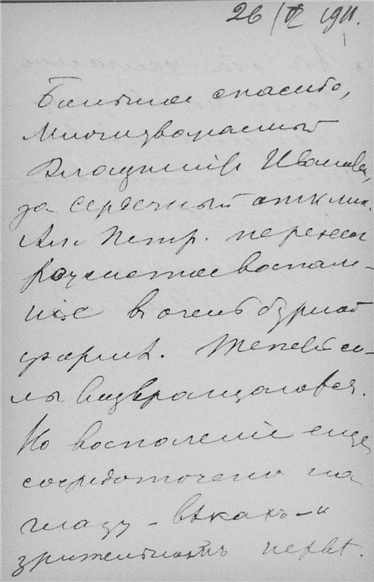 26/VI 1911.
Большое спасибо,
Многоуважаемый
Владимiръ Ивановичъ,
за сердечный откликъ.
Ал. Петр. перенесъ
рожистое воспале-
нiе въ очень бурной
формѣ. Теперь си-
лы возвращаются.
Но воспаленiе еще
сосредоточено на
глазу - вѣкахъ - и